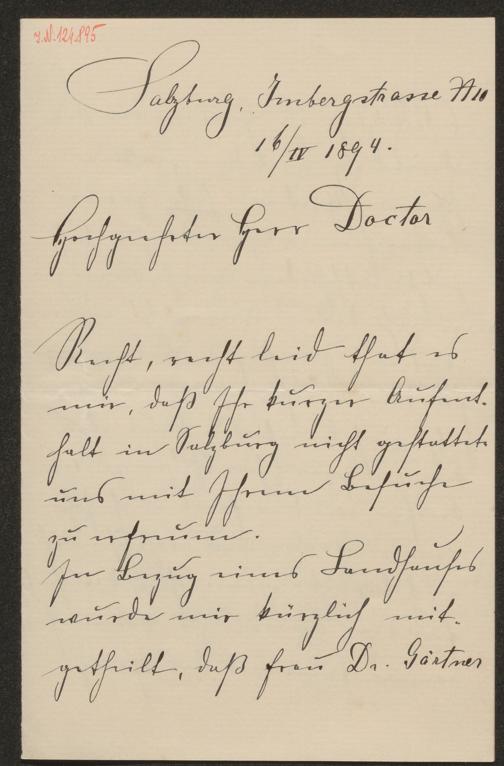 J.N. 124.895
Salzburg, Imbergstrasse № 10
16/IV 1894.
Hochgeehrter Herr Doctor
Recht, recht leid that es
mir, daß Ihr kurzer Aufent-
halt in Salzburg nicht gestattete
uns mit Ihrem Besuche
zu erfreuen.
In Bezug eines Landhauses
wurde mir kürzlich mit-
getheilt, daß Frau Dr. Gärtner